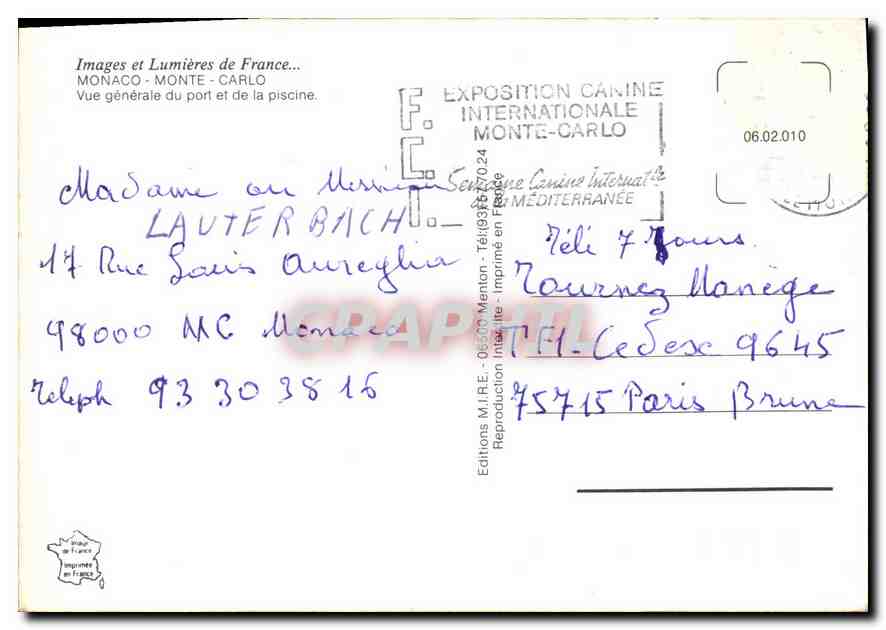 Images et Lumières de France...
MONACO - MONTE - CARLO
Vue générale du port et de la piscine.
F.
C.
I.
EXPOSITION CANINE
INTERNATIONALE
MONTE-CARLO
Semaine Canine Internat.le
de la MÉDITERRANÉE
06.02.010
Madame ou Monsieur
LAUTERBACH
17 Rue Louis Aureglia
98000 MC Monaco
Téleph 93 30 38 16
Editions M.I.R.E. - 06500 Menton - Tél:(93)57.70.24
Reproduction Interdite - Imprimé en France
Télé 7 Jours
Tournez Manège
TF1-Cedex 9645
75715 Paris Brune
CPAPHIL
Image
de France
Imprimée
en France